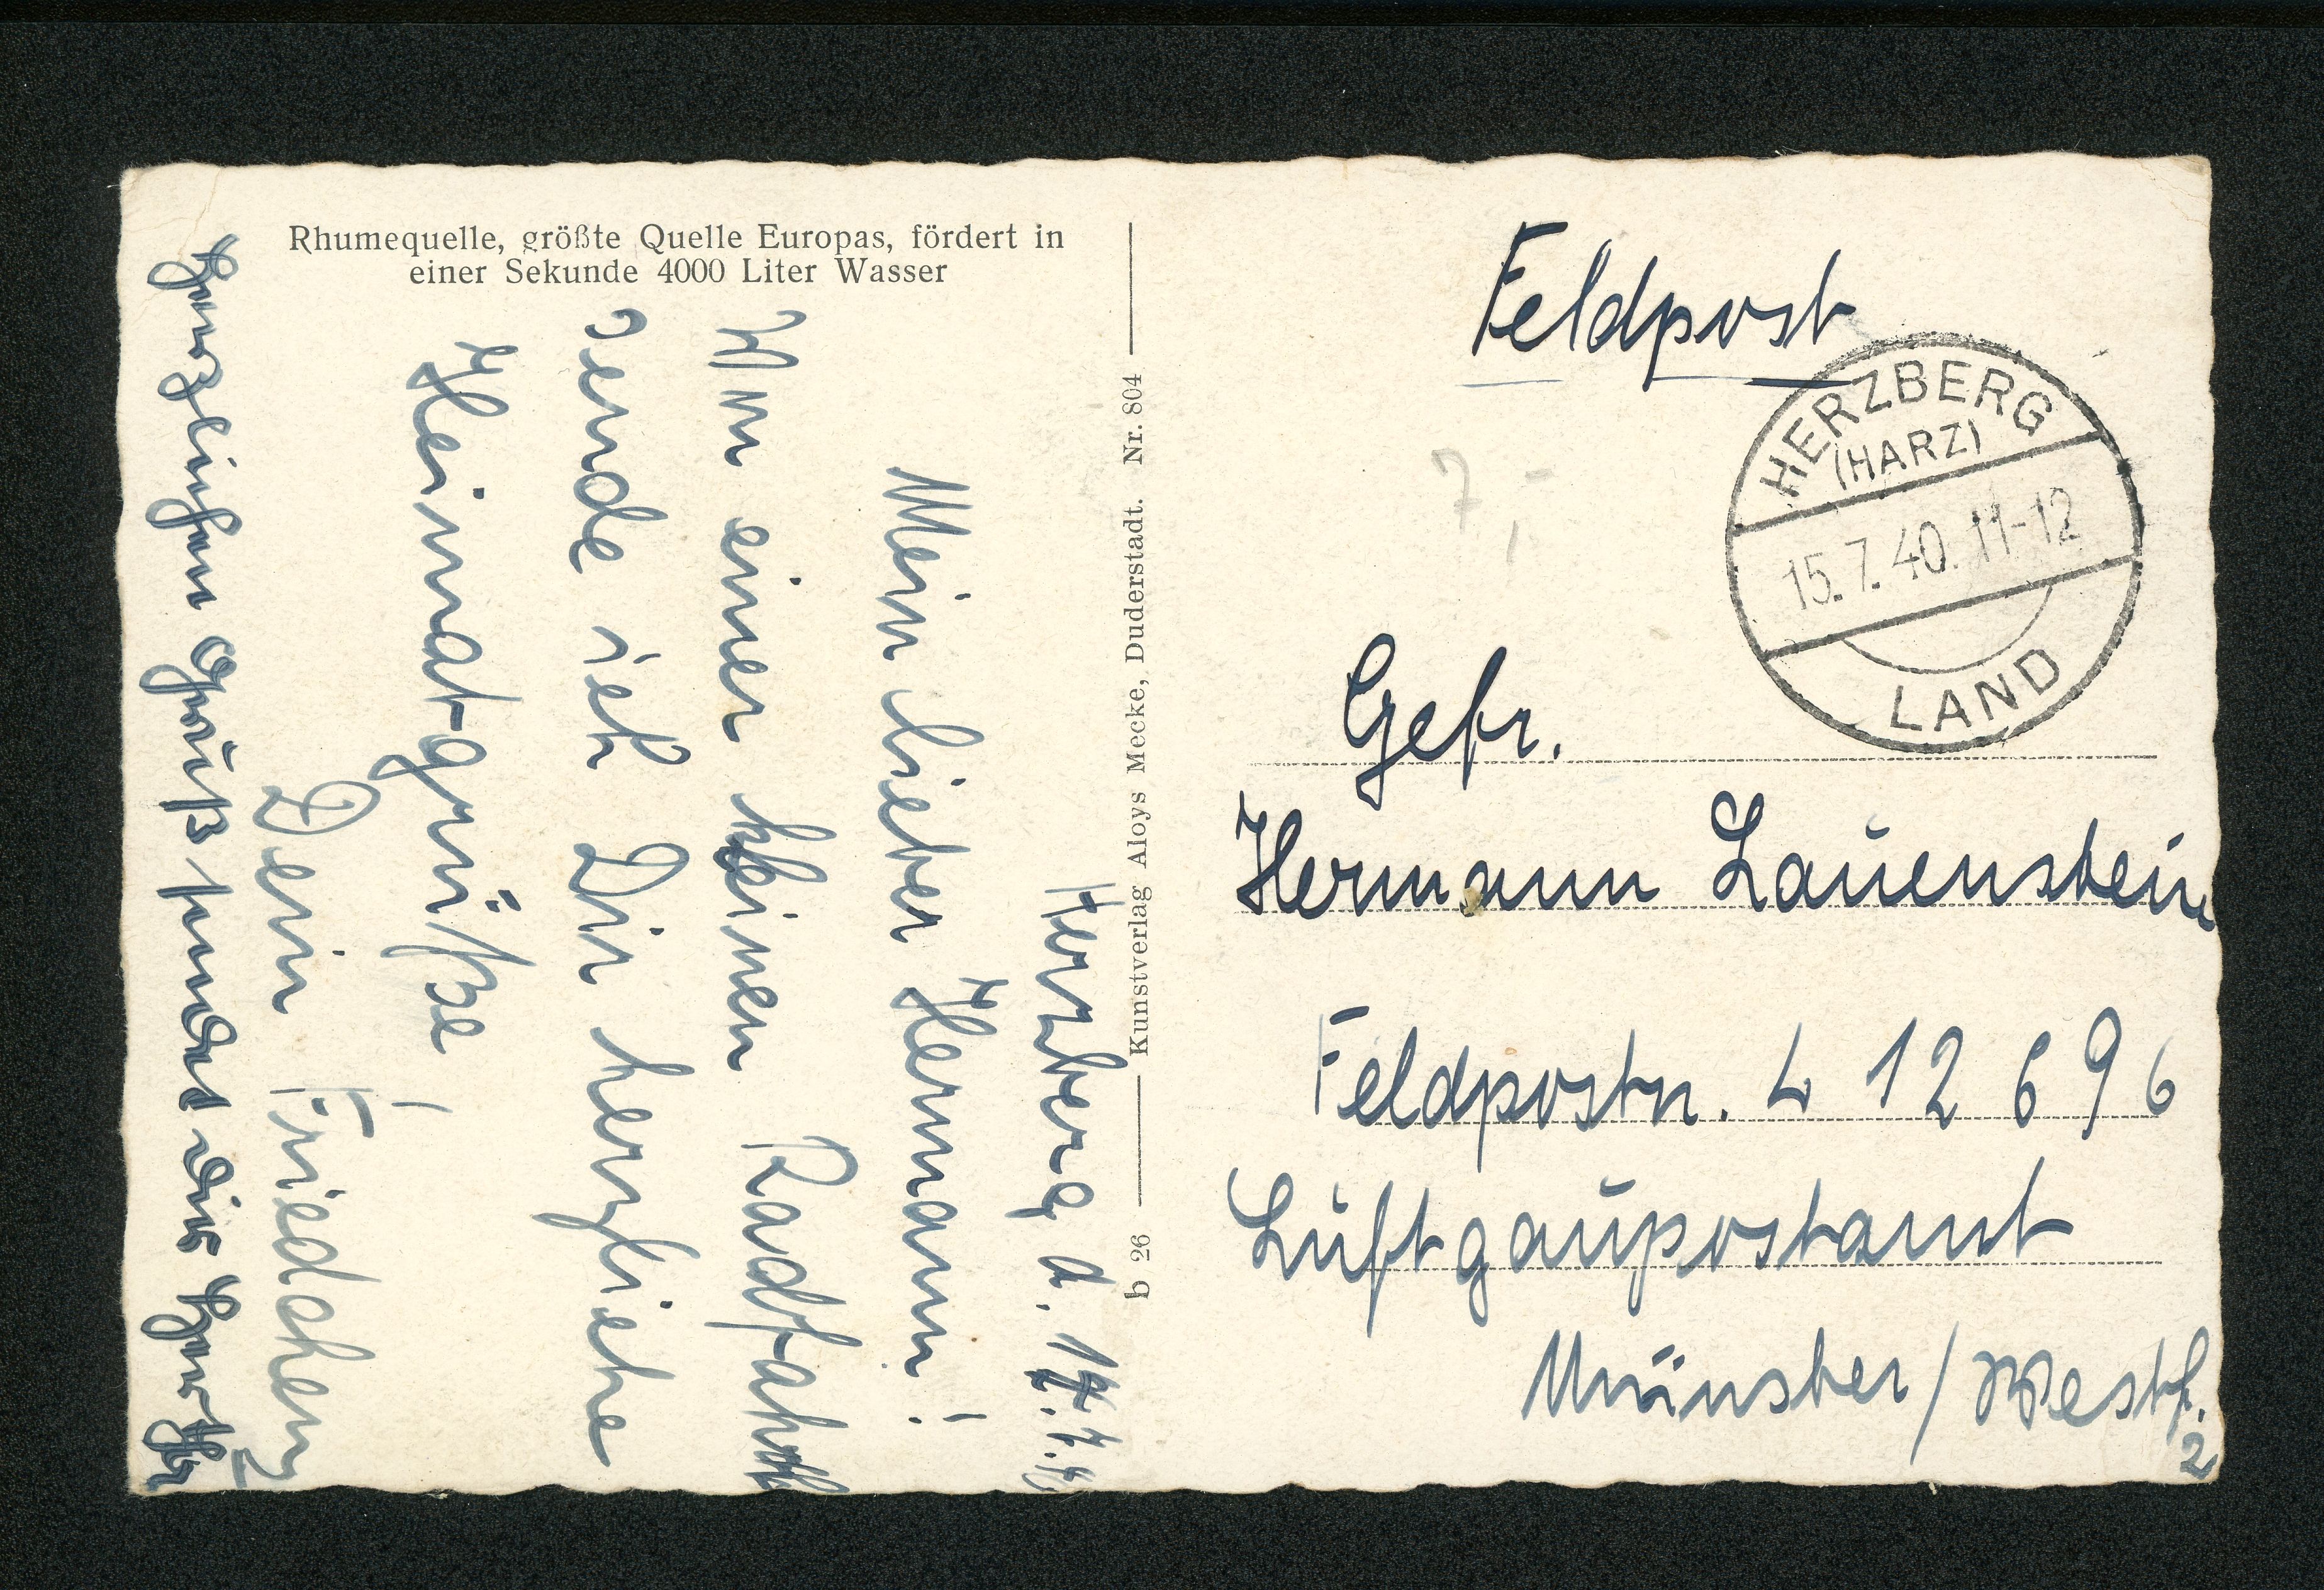 Rhumequelle, größte Quelle Europas, fördert in
einer Sekunde 4000 Liter Wasser
Herzberg d.
Mein lieber Hermann!
Von einer kleinen Radfahrt
sende ich Dir herzliche
Heimatgrüße!
Dein Friedchen
Herzlichen Gruß sendet dir
b 26
Kunstverlag Aloys Mecke, Duderstadt. Nr. 804
Feldpost
HERZBERG
(HARZ)
15.7.40. 11-12
LAND
7,-
Gefr.
Hermann Lauenstein
Feldpostn. L 12696
Luftgaupostamt
Münster/Westf.
2